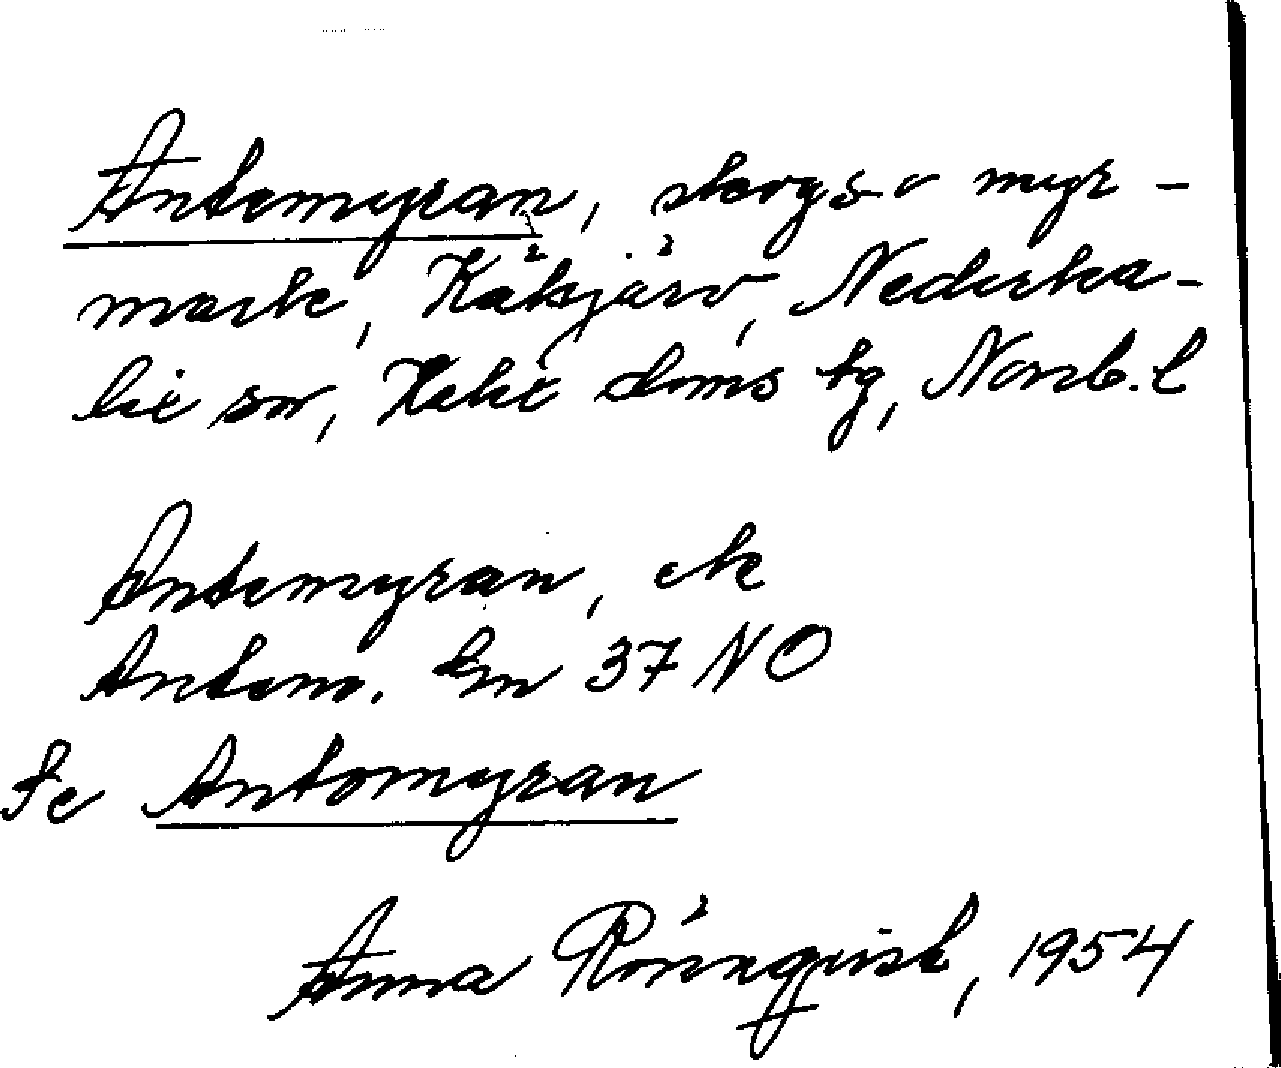 Antemyran, skogs- o myr-
mark, Käksjärv, Nederka-
lix sn, Kalix doms tg, Norrb. l
Antemyran, ek
Antem. En 37 NO
Se Antomyran
Anna Rönnqvist, 1954